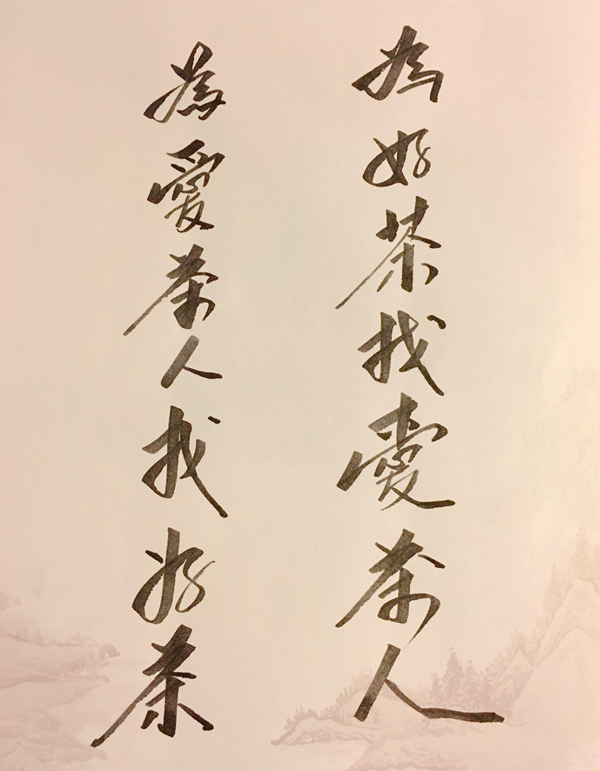 為好茶找愛茶人
為愛茶人找好茶